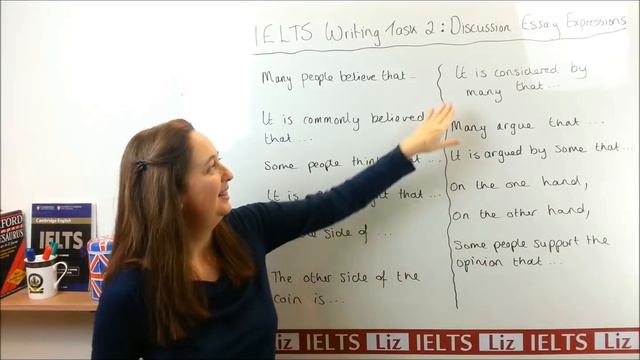 IELTS Writing Task 2: Discussion Essay Expressions
Many people believe that...
It is commonly believed
that...
Some people think that...
It is that...
side of...
The other side of the
coin is...
It is considered by
many that...
Many argue that...
It is argued by some that...
On the one hand,
On the other hand,
Some people support the
opinion that...
OXFORD
THESAURUS
Cambridge English
IELTS
Liz IELTS Liz IELTS Liz IELTS Liz IELTS